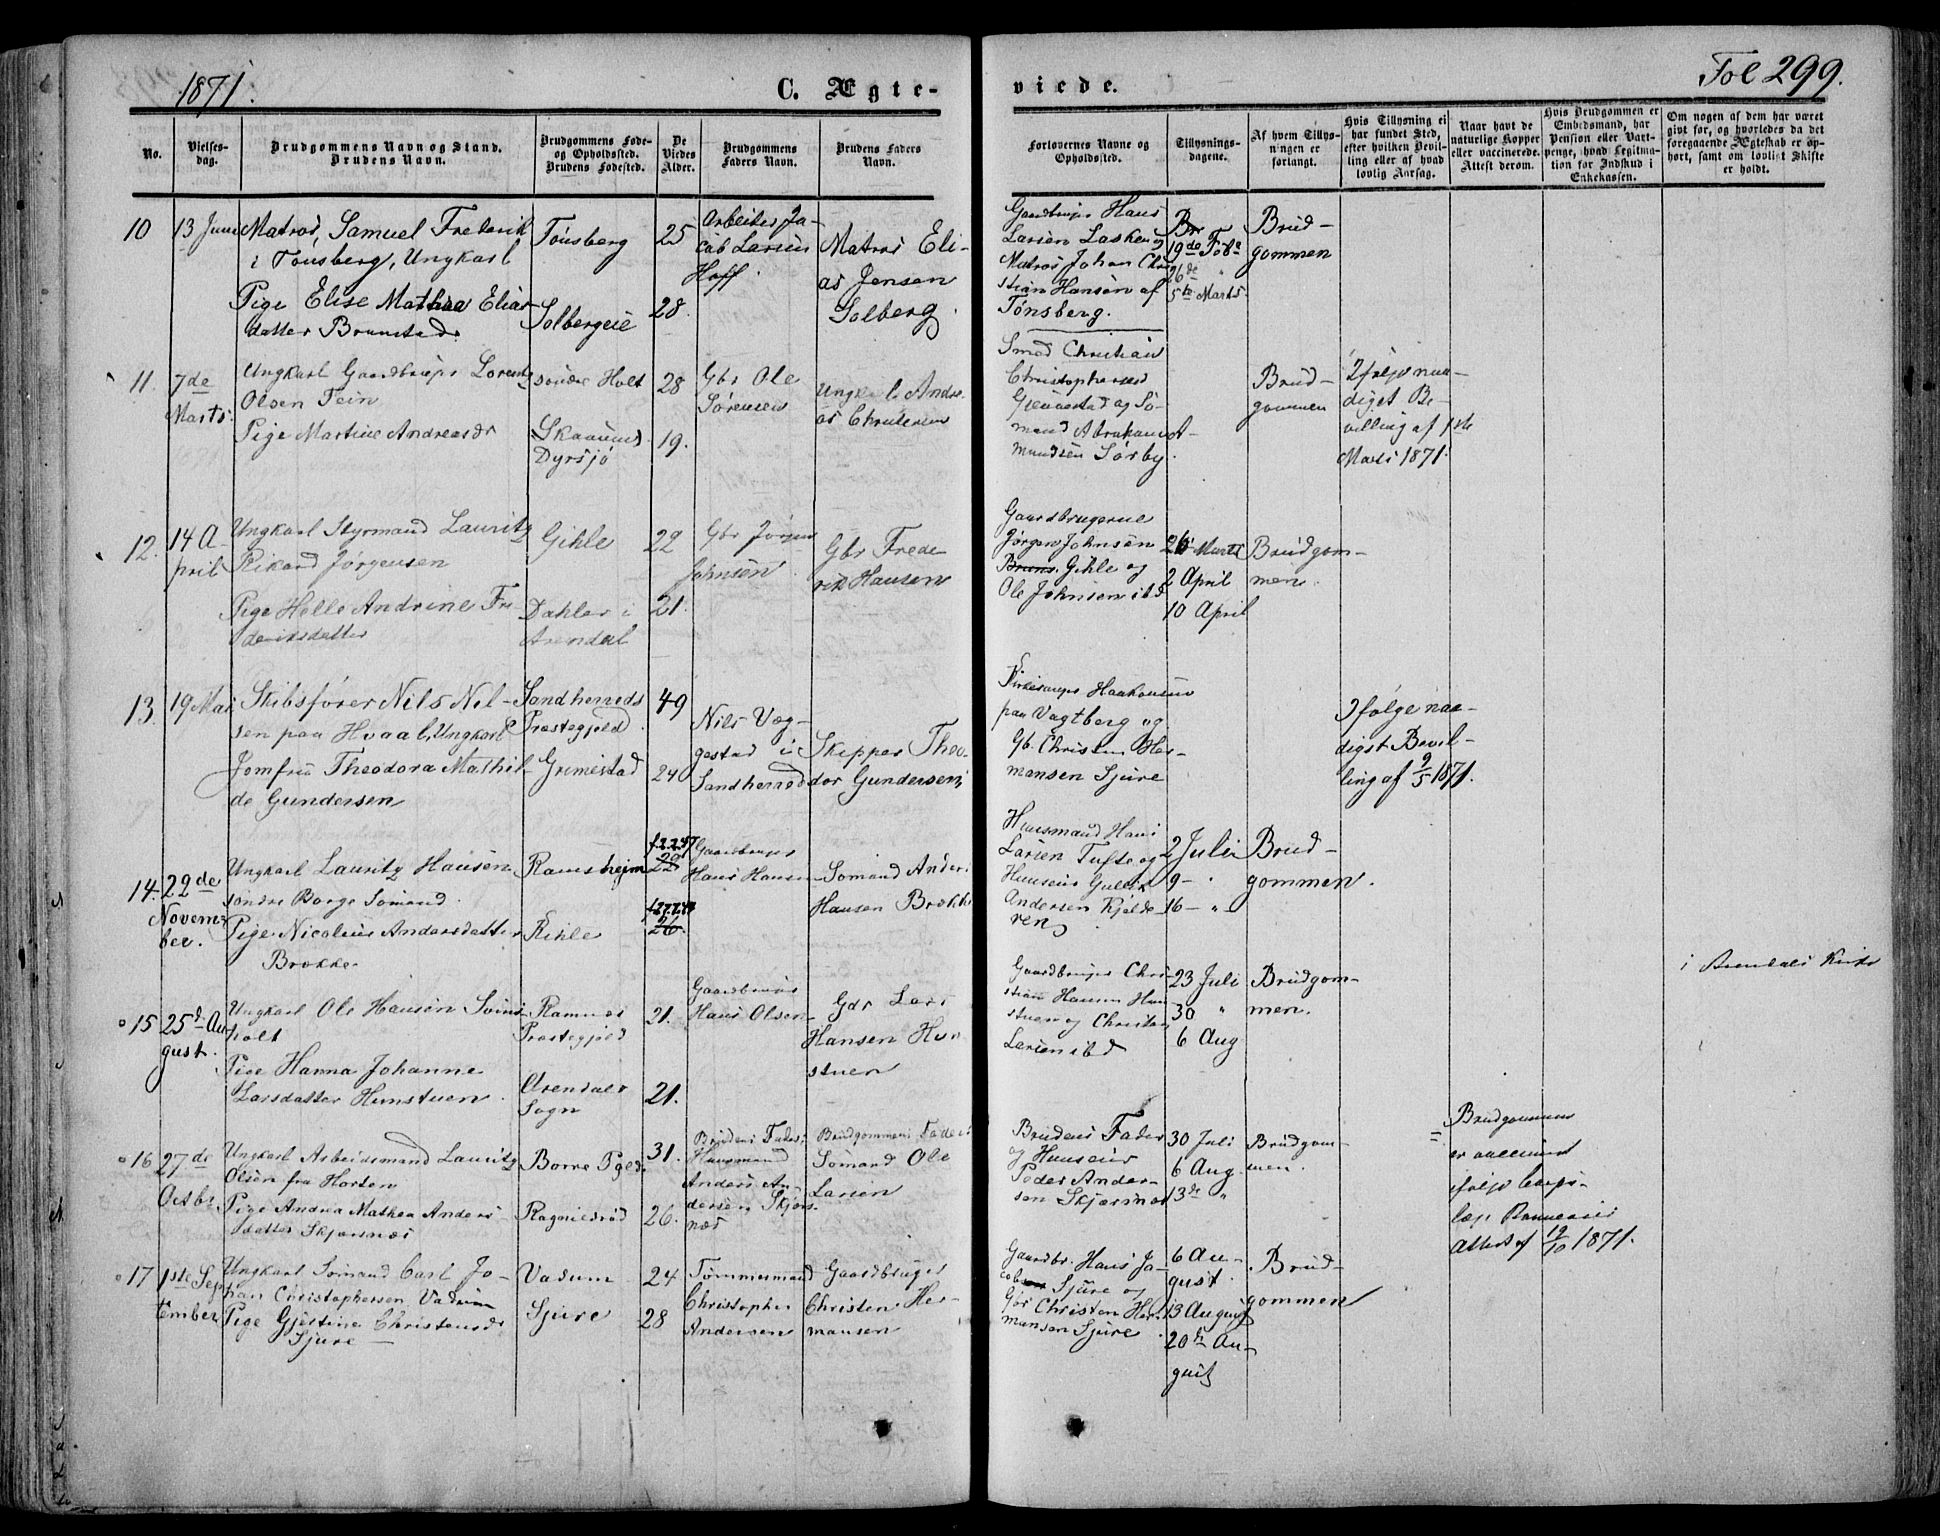 1871.
C. Ægte-
viede.
Fol 299.
No.
Vielses-
dag.
Brudgommens Navn og Stand.
Brudens Navn.
Brudgommens Føde-
og Opholdssted.
Brudens Fødested.
De
Viedes
Alder.
Brudgommens
Faders Navn.
Brudens Faders
Navn.
Forlovernes Navne og
Opholdssted.
Tillysnings-
dagene.
Af hvem Tillys-
ningen er
forlangt.
Hvis Tillysning ei
har fundet Sted,
efter hvilken Bevil-
ling eller af hvad
lovlig Aarsag.
Naar havt de
naturlige Kopper
eller vaccinerede.
Attest derom.
Hvis Brudgommen er
Embedsmand, har
Pension eller Vart-
penge, hvad Legitima-
tion for Indskud i
Enkekassen.
Om nogen af dem har været
gift før, og hvorledes da det
foregaaende Ægteskab er op-
hørt, samt om lovligt Skifte
er holdt.
10
13 Juni
Matros, Samuel Frederik
i Tønsberg, Ungkarl
Pige Elise Mathea Elias
datter Brunstad
Tønsberg
Solbergeie
25
28.
Arbeider Ja-
cob Larsen
Hoff.
Matros Eli-
as Jensen
Solberg.
Gaardbruger Hans
Larsen Lasken og
Matros Johan Chri
stian Hansen af
Tønsberg.
Br
19de Feb
26de "
5te Marts.
Brud-
gommen
11.
7de
Marts.
Ungkarl Gaardbruger Lorentz
Olsen Fein
Pige Martine Andreasdr
søndre Holt
Dyrsjø
28
19.
Gbr Ole
Sørensen
Ungkarl Andre
as
Smed Christian
Christophersen
og Sø-
mand Abraham A-
mundsen Sørby.
Brud-
gommen
Ifølge naa-
digst Be-
villing af 1ste
Marts 1871.
12.
14 A
pril
Ungkarl Styrmand Lauritz
Rikard Jørgensen
Pige Helle Andrine Fre
deriksdatter
Gihle
Dahler i
Arendal
22
21.
Gbr Jørgen
Johnsen
Gbr Frede
rik Hansen
Gaardbrugerne
Jørgen Johnsen
Gihle og
Ole Johnsen ibd
26 Marts
2 April
10 April
Brudgom-
men.
13.
19 Mai
Skibsfører Nils Nil-
sen paa Hvaal, Ungkarl
Jomfru Theodora Mathil-
de Gundersen
Sandherreds
Præstegjeld
Grimestad
49
24
Nils Væg-
gestad i
Sandherred
Skipper Theo
dor Gundersen
Haakonsen
paa Vagtberg og
Gb. Christen Her-
mansen Sjure
Ifølge naa-
digst Bevil-
ling af 9/5 1871.
14.
22de
Novem-
ber.
Ungkarl Lauritz Hansen
søndre Borge Sømand.
Pige Nicoline Andersdatter
Brekke
Ramshejm
Kihle
26.
Gaardbruger
Hans Hansen
Sømand Anders
Hansen Brekke
Huusmand Hans
Larsen Tufte og
Andersen Kjelde-
ren
2 Juli
9 - "
16 - "
Brud-
gommen.
15
25d Au
gust.
Ungkarl Ole Hansen
holt
Pige Hanna Johanne
Larsdatter Hunstuen
Ramnæs
Præstegjeld
Arendals
Sogn
21.
21.
Gaardbruger
Hans Olsen
Gbr Lars
Hansen Hun
stuen
Gaardbruger Chri-
stian Hansen Hun
stuen og Christen
Larsen ibd
23 Juli
30 "
6 Aug
Brudgom-
men.
i Arendals Kirke
16
27de
Octbr
Ungkarl Arbeidsmand Lauritz
Olsen fra Horten
Pige Andrea Mathea Anders
datter Skjærsnæs
Borre Pgld
31.
26.
Brudens Fader,
Huusmand
Anders An-
dersen Skjærs
næs
Brudgommens Fader
Sømand Ole
Larsen
Brudens Fader
og
Peder Ander-
sen Skjærsnæs
30 Juli
6 Aug
13de "
Brudgom-
men.
Brudgommen
er vaccineret
ifølge
Attest af 19/10 1871.
17
1ste Sep
tember
Ungkarl Sømand Carl Jo-
han Christophersen Vadum
Pige Gjertine Christensdr
Sjure
Vadum
Sjure
24
28
Tømmermand
Christopher
Andersen
Gaardbruger
Christen Her-
mansen
Gaardbr. Hans Ja-
cobsen Sjure og
Gbr Christen Her-
mansen Sjure
6 Au-
gust.
13 August
20de Au-
gust
Brud-
gommen